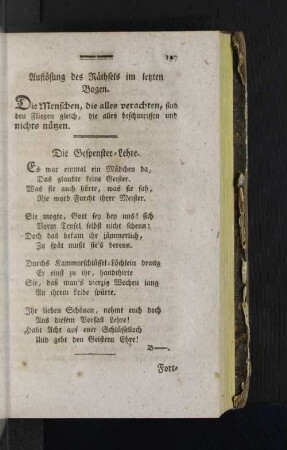 Auflösung des Räthsels im letzten
Bogen.
Die Menschen, die alles verachten, sind
den Fliegen gleich, die alles beschmeissen und
nichts nützen.
Die Gespenster-Lehre.
Es war einmal ein Mädchen da,
Das glaubte keine Geister.
Was sie auch hörte, was sie sah,
Nie ward Furcht ihrer Meister.
Sie mogte, Gott sey bey uns! sich
Vorm Teufel selbst nicht scheun:
Doch das bekam ihr jämmerlich,
Zu spät mußt sie's bereun.
Durchs Kammerschlüssel-Löchlein drang
Er einst zu ihr, handthirte
Sie, daß man's vierzig Wochen lang
An ihrem Leibe spürte.
Ihr lieben Schönen, nehmt euch doch
Aus diesem Vorfall Lehre!
Habt Acht auf euer Schlüsselloch
Und gebt den Geistern Ehre!
B—.
Fort-